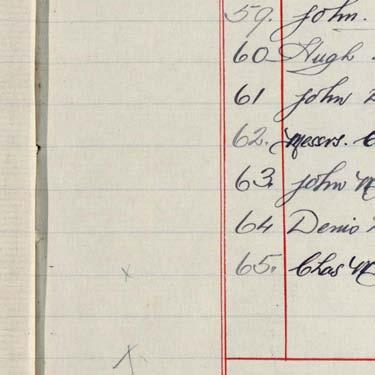 59. John.
60 Hugh
61 John
62. Messrs.
63. John
64 Denis
65. Chas
x
x